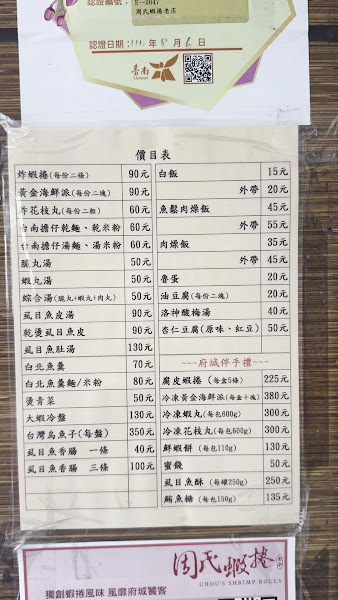 認證編號：E--0047
周氏蝦捲老店
認證日期：111. 年 月 日
臺南
TAINAN
價目表
炸蝦捲(每份二條) 90元
黃金海鮮派(每份二塊) 90元
炸花枝丸(每份二粒) 60元
台南擔仔乾麵、乾米粉 60元
台南擔仔湯麵、湯米粉 60元
脆丸湯 50元
蝦丸湯 50元
綜合湯(脆丸+蝦丸+肉丸) 50元
虱目魚皮湯 90元
乾燙虱目魚皮 90元
虱目魚肚湯 130元
白北魚羹 70元
白北魚羹麵/米粉 80元
燙青菜 50元
大蝦冷盤 130元
台灣烏魚子(每盤) 350元
虱目魚香腸 一條 40元
虱目魚香腸 三條 100元
白飯 15元
外帶 20元
魚鬆肉燥飯 45元
外帶 55元
肉燥飯 35元
外帶 45元
魯蛋 20元
油豆腐(每份二塊) 20元
洛神酸梅湯 40元
杏仁豆腐(原味、紅豆) 50元
~~~府城伴手禮~~~
腐皮蝦捲(每盒5條) 225元
冷凍黃金海鮮派(每盒十塊) 380元
冷凍蝦丸(每包600g) 300元
冷凍花枝丸(每包600g) 300元
鮮蝦餅(每包110g) 130元
蜜餞 50元
虱目魚酥(每罐250g) 250元
鮪魚糖(每包150g) 135元
周氏蝦捲
CHOU'S SHRIMP ROLLS
獨創蝦捲風味 風靡府城饕客